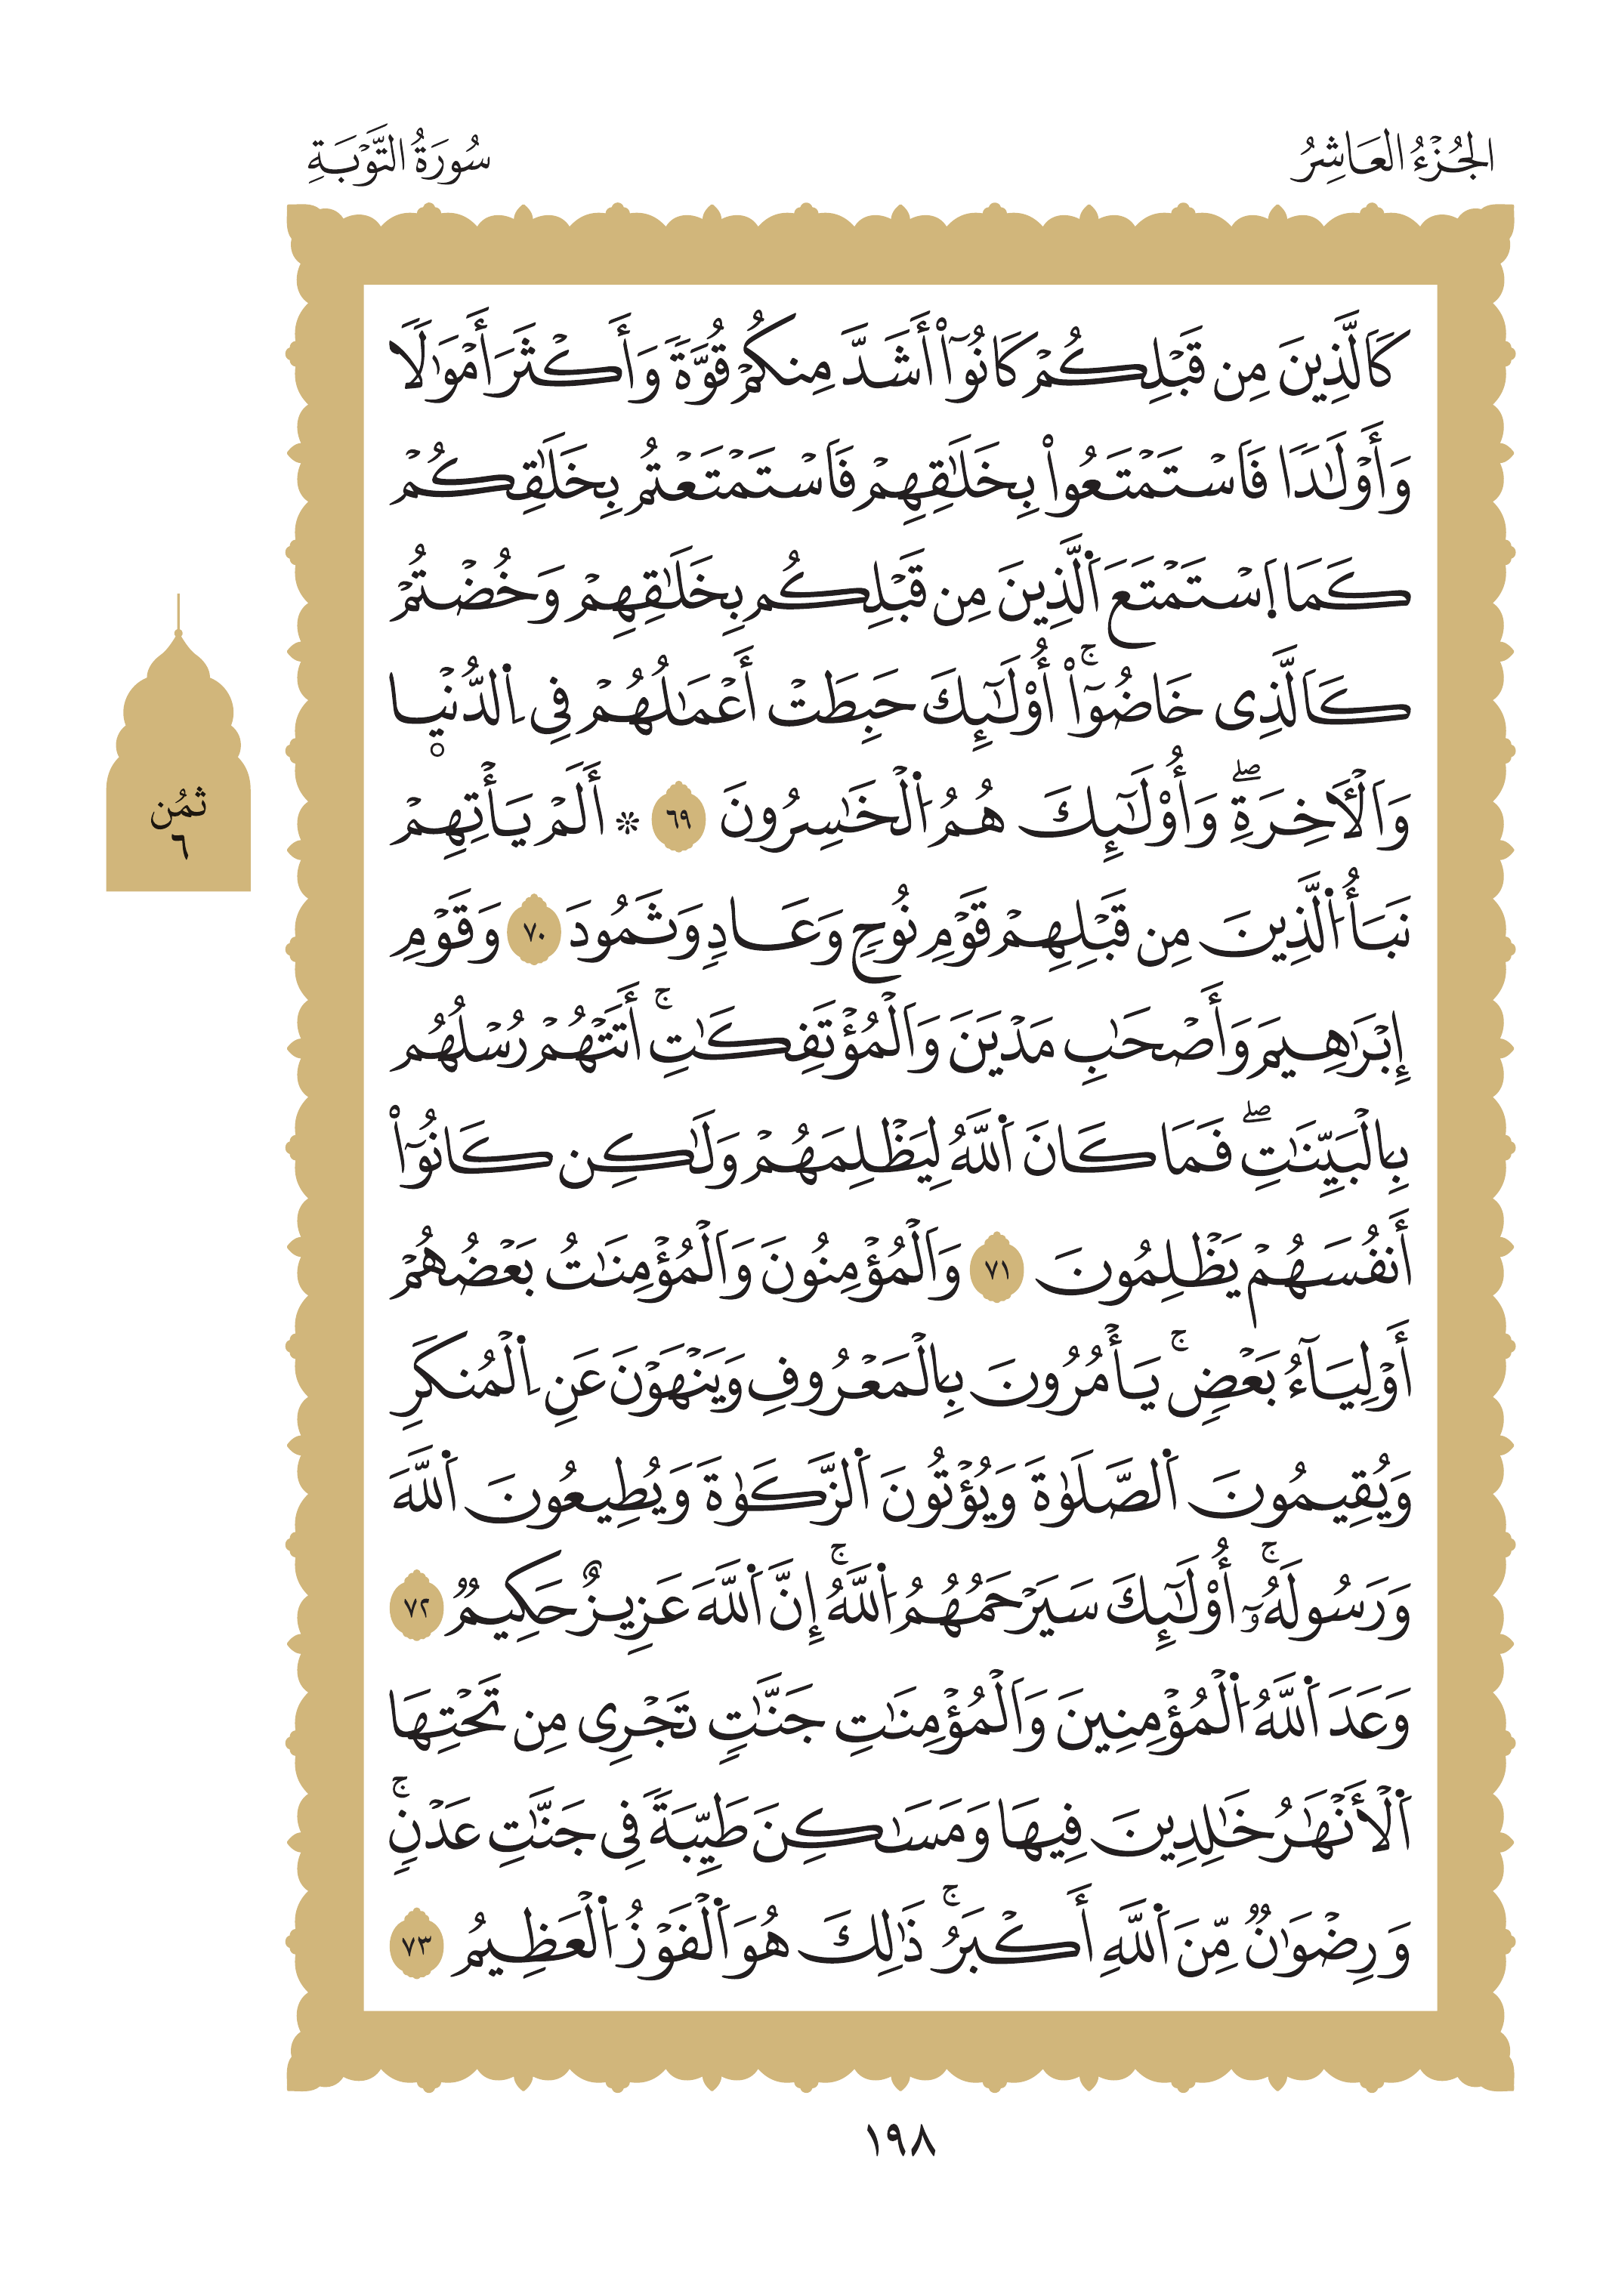 الجُزْءُ العَاشِرُ
سُورَةُ التَّوْبَةِ
كَالَّذِينَ مِن قَبْلِكُمْ كَانُوٓاْ أَشَدَّ مِنكُمْ قُوَّةٗ وَأَكْثَرَ أَمْوَٰلٗا
وَأَوْلَٰدٗا فَاسْتَمْتَعُواْ بِخَلَٰقِهِمْ فَاسْتَمْتَعْتُم بِخَلَٰقِكُمْ
كَمَا اَ۪سْتَمْتَعَ اَ۬لَّذِينَ مِن قَبْلِكُم بِخَلَٰقِهِمْ وَخُضْتُمْ
كَالَّذِى خَاضُوٓاْۚ أُوْلَٰٓئِكَ حَبِطَتْ أَعْمَٰلُهُمْ فِى اِ۬لدُّنْي۪ا
وَالْأٓخِرَةِۖ وَأُوْلَٰٓئِكَ هُمُ اُ۬لْخَٰسِرُونَ ٦٩ ۞ أَلَمْ يَأْتِهِمْ
نَبَأُ اُ۬لَّذِينَ مِن قَبْلِهِمْ قَوْمِ نُوحٖ وَعَادٖ وَثَمُودَ ٧٠ وَقَوْمِ
إِبْرَٰهِيمَ وَأَصْحَٰبِ مَدْيَنَ وَالْمُؤْتَفِكَٰتِۚ أَتَتْهُمْ رُسْلُهُم
بِالْبَيِّنَٰتِۖ فَمَا كَانَ اَ۬للَّهُ لِيَظْلِمَهُمْ وَلَٰكِن كَانُوٓاْ
أَنفُسَهُمْ يَظْلِمُونَ ٧١ وَالْمُؤْمِنُونَ وَالْمُؤْمِنَٰتُ بَعْضُهُمْ
أَوْلِيَآءُ بَعْضٖۚ يَأْمُرُونَ بِالْمَعْرُوفِ وَيَنْهَوْنَ عَنِ اِ۬لْمُنكَرِ
وَيُقِيمُونَ اَ۬لصَّلَوٰةَ وَيُؤْتُونَ اَ۬لزَّكَوٰةَ وَيُطِيعُونَ اَ۬للَّهَ
وَرَسُولَهُۥٓۚ أُوْلَٰٓئِكَ سَيَرْحَمُهُمُ اُ۬للَّهُۚ إِنَّ اَ۬للَّهَ عَزِيزٌ حَكِيمٞ ٧٢
وَعَدَ اَ۬للَّهُ اُ۬لْمُؤْمِنِينَ وَالْمُؤْمِنَٰتِ جَنَّٰتٖ تَجْرِى مِن تَحْتِهَا
اَ۬لْأَنْهَٰرُ خَٰلِدِينَ فِيهَا وَمَسَٰكِنَ طَيِّبَةٗ فِى جَنَّٰتِ عَدْنٖۚ
وَرِضْوَٰنٞ مِّنَ اَ۬للَّهِ أَكْبَرُۚ ذَٰلِكَ هُوَ اَ۬لْفَوْزُ اُ۬لْعَظِيمُ ٧٣
ثمُن
٦
١٩٨